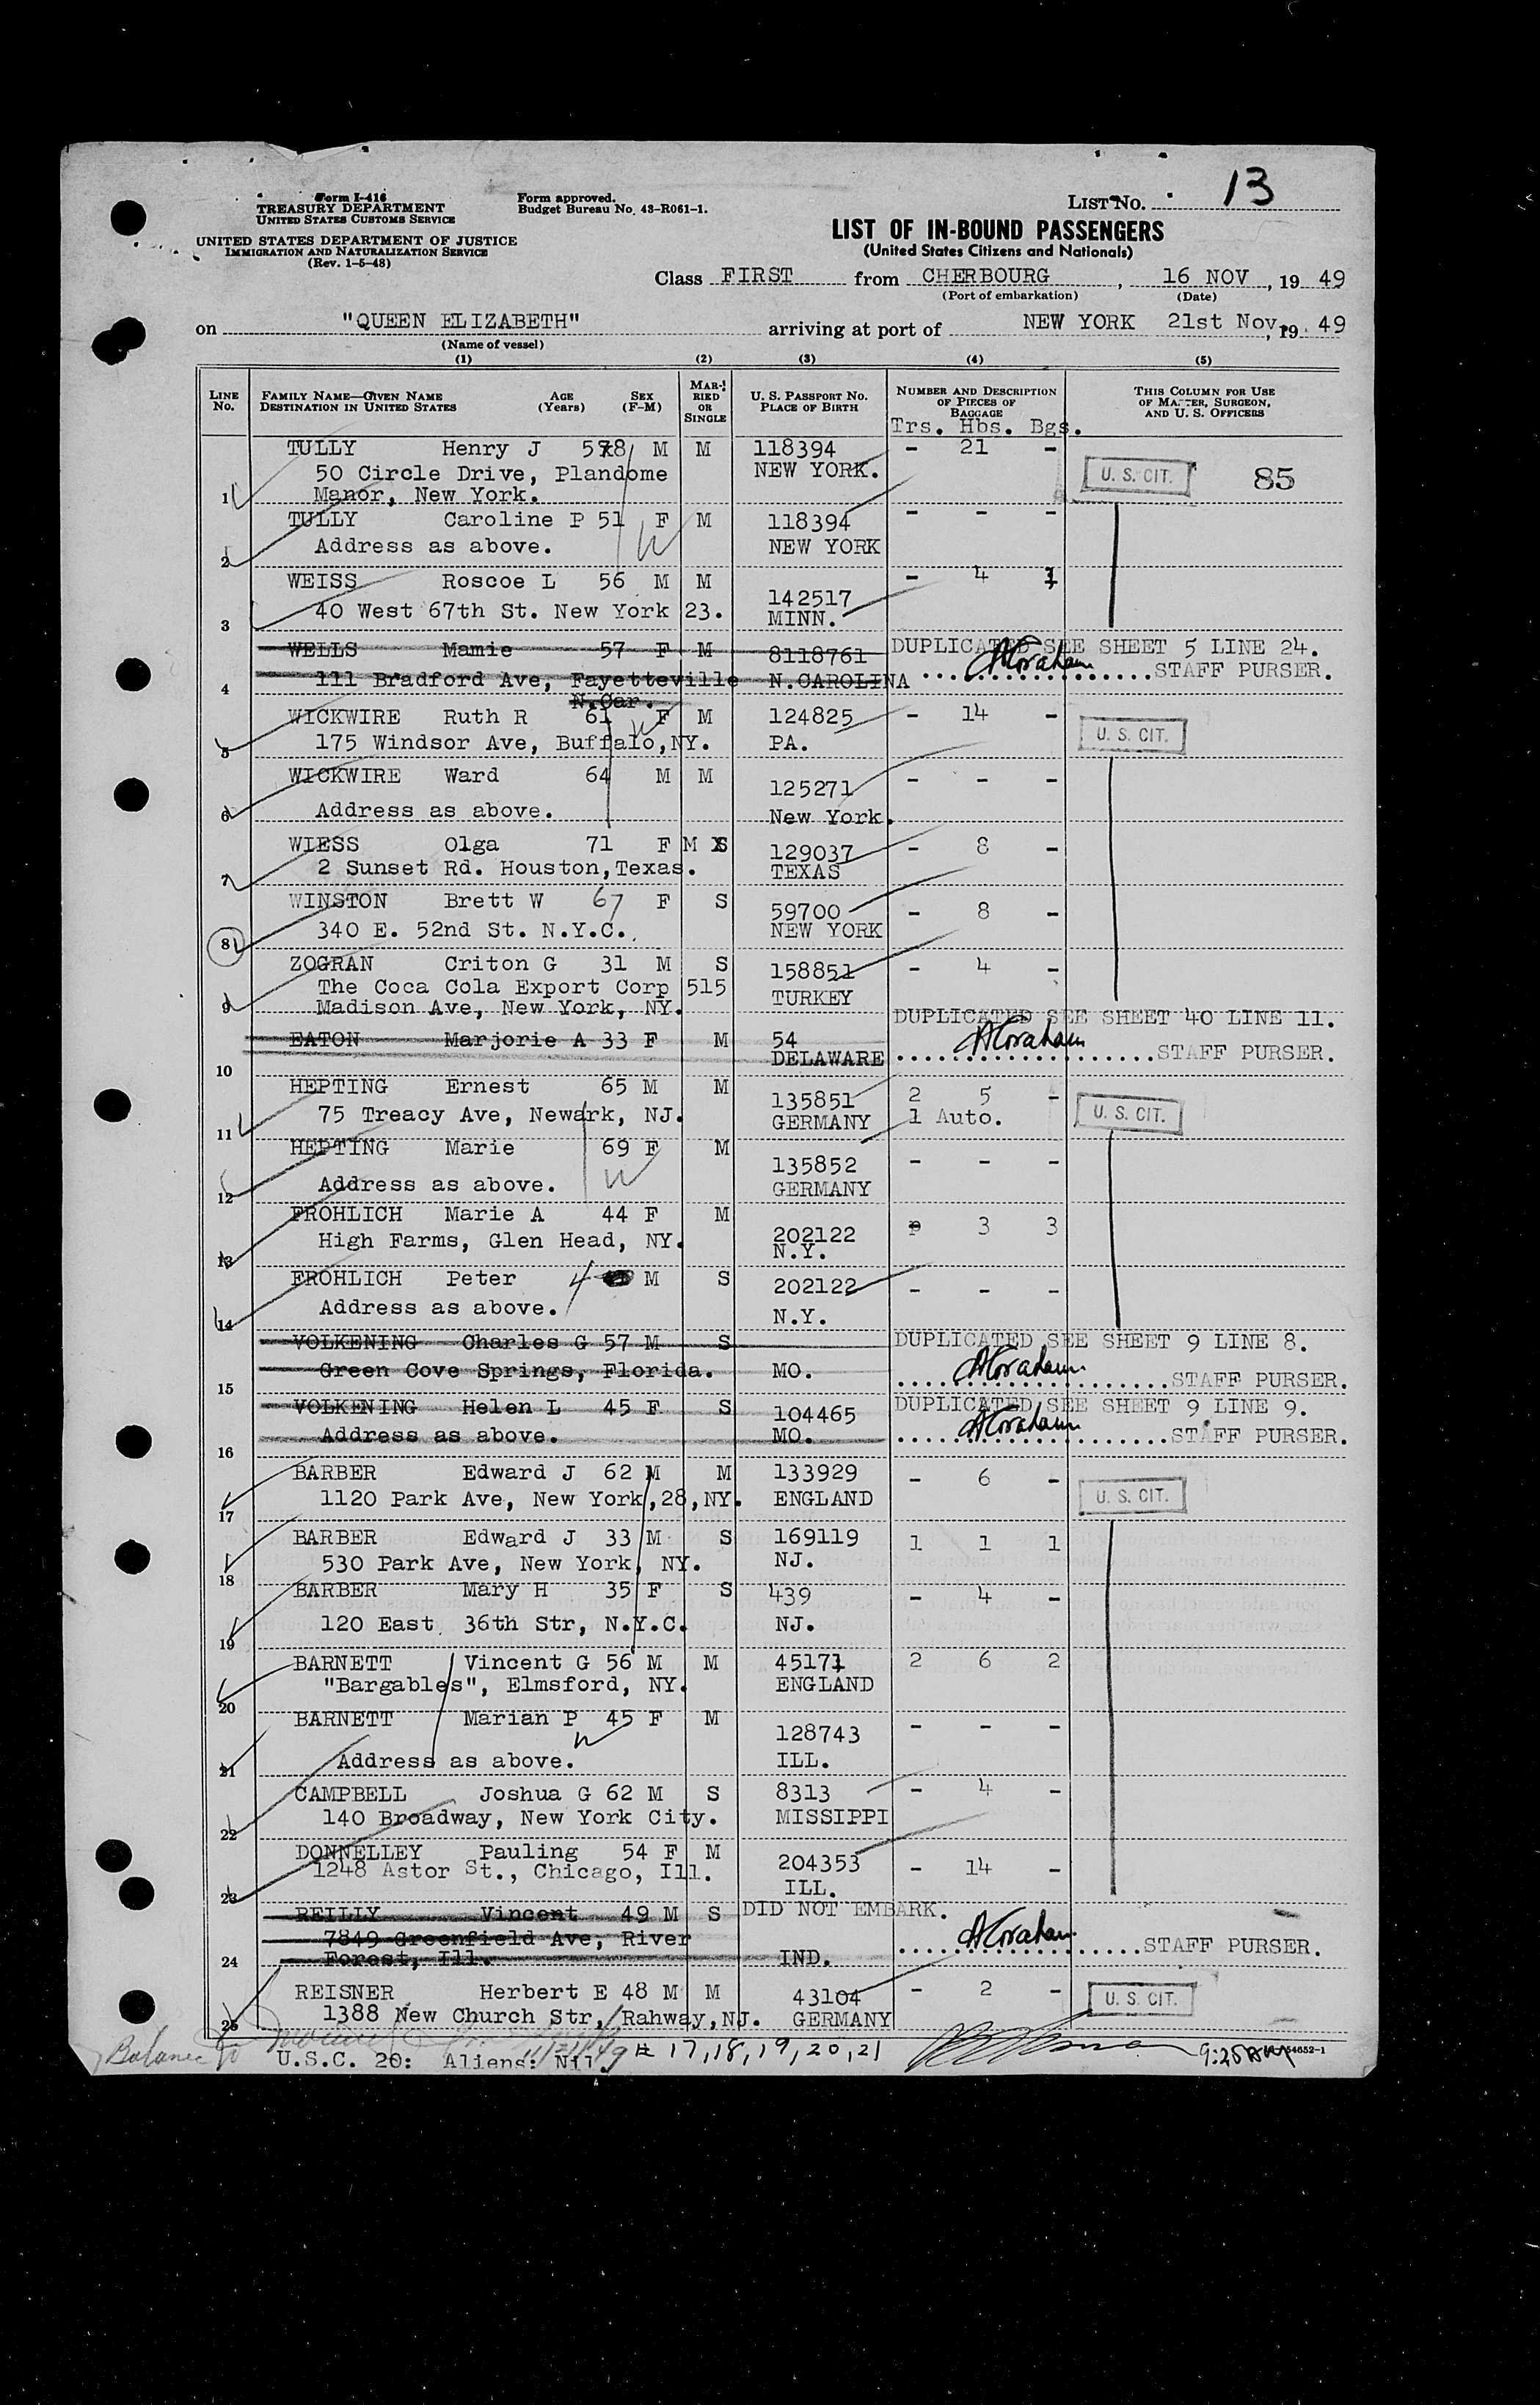 Form I-416
TREASURY DEPARTMENT
UNITED STATES CUSTOMS SERVICE
UNITED STATES DEPARTMENT OF JUSTICE
IMMIGRATION AND NATURALIZATION SERVICE
(Rev. 1-5-48)
Form approved.
Budget Bureau No. 43-R061-1.
LIST No. 13
LIST OF IN-BOUND PASSENGERS
(United States Citizens and Nationals)
Class FIRST from CHERBOURG, 16 NOV, 19 49
(Port of embarkation) (Date)
on "QUEEN ELIZABETH" arriving at port of NEW YORK 21st Nov, 19 49
(Name of vessel)
(1) (2) (3) (4) (5)
LINE No. FAMILY NAME—GIVEN NAME AGE (Years) SEX (F-M) DESTINATION IN UNITED STATES MARRIED OR SINGLE U. S. PASSPORT NO. PLACE OF BIRTH NUMBER AND DESCRIPTION OF PIECES OF BAGGAGE THIS COLUMN FOR USE OF MASTER, SURGEON, AND U. S. OFFICERS
Trs. Hbs. Bgs.
TULLY Henry J 58 M M 118394 - 21 -
50 Circle Drive, Plandome NEW YORK. U. S. CIT. 85
1 Manor, New York.
TULLY Caroline P 51 F M 118394 - - -
2 Address as above. NEW YORK
WEISS Roscoe L 56 M M 142517 - 4 1
3 40 West 67th St. New York 23. MINN.
WELLS Mamie 57 F M 8118761 DUPLICATED SEE SHEET 5 LINE 24.
4 111 Bradford Ave, Fayetteville N.CAROLINA STAFF PURSER.
N.Car.
WICKWIRE Ruth R 61 F M 124825 - 14 -
5 175 Windsor Ave, Buffalo, NY. PA. U. S. CIT.
WICKWIRE Ward 64 M M 125271 - - -
6 Address as above. New York.
WIESS Olga 71 F M S 129037 - 8 -
7 2 Sunset Rd. Houston, Texas. TEXAS
WINSTON Brett W 67 F S 59700 - 8 -
8 340 E. 52nd St. N.Y.C. NEW YORK
ZOGRAN Criton G 31 M S 158851 - 4 -
The Coca Cola Export Corp 515 TURKEY
9 Madison Ave, New York, NY.
EATON Marjorie A 33 F M 54 DUPLICATED SEE SHEET 40 LINE 11.
10 DELAWARE STAFF PURSER.
HEPTING Ernest 65 M M 135851 2 5 -
11 75 Treacy Ave, Newark, NJ. GERMANY 1 Auto. U. S. CIT.
HEPTING Marie 69 F M 135852 - - -
12 Address as above. GERMANY
FROHLICH Marie A 44 F M 202122 3 3
13 High Farms, Glen Head, NY. N.Y.
FROHLICH Peter 4 M S 202122 - - -
14 Address as above. N.Y.
VOLKENING Charles G 57 M S DUPLICATED SEE SHEET 9 LINE 8.
15 Green Cove Springs, Florida. MO. STAFF PURSER.
VOLKENING Helen L 45 F S 104465 DUPLICATED SEE SHEET 9 LINE 9.
16 Address as above. MO. STAFF PURSER.
BARBER Edward J 62 M M 133929 - 6 -
17 1120 Park Ave, New York, 28, NY. ENGLAND U. S. CIT.
BARBER Edward J 33 M S 169119 1 1 1
18 530 Park Ave, New York, NY. NJ.
BARBER Mary H 35 F S 439 - 4 -
19 120 East 36th Str, N.Y.C. NJ.
BARNETT Vincent G 56 M M 45171 2 6 2
20 "Bargables", Elmsford, NY. ENGLAND
BARNETT Marian P 45 F M 128743 - - -
21 Address as above. ILL.
CAMPBELL Joshua G 62 M S 8313 - 4 -
22 140 Broadway, New York City. MISSIPPI
DONNELLEY Pauling 54 F M 204353 - 14 -
23 1248 Astor St., Chicago, Ill. ILL.
REILLY Vincent 49 M S DID NOT EMBARK.
7849 Greenfield Ave, River
24 Forest, Ill. IND. STAFF PURSER.
REISNER Herbert E 48 M M 43104 - 2 -
25 1388 New Church Str, Rahway, NJ. GERMANY U. S. CIT.
Balance to 11/21/49 # 17,18,19,20,21
U.S.C. 20: Aliens: Nil. 9:25 AM 54652-1